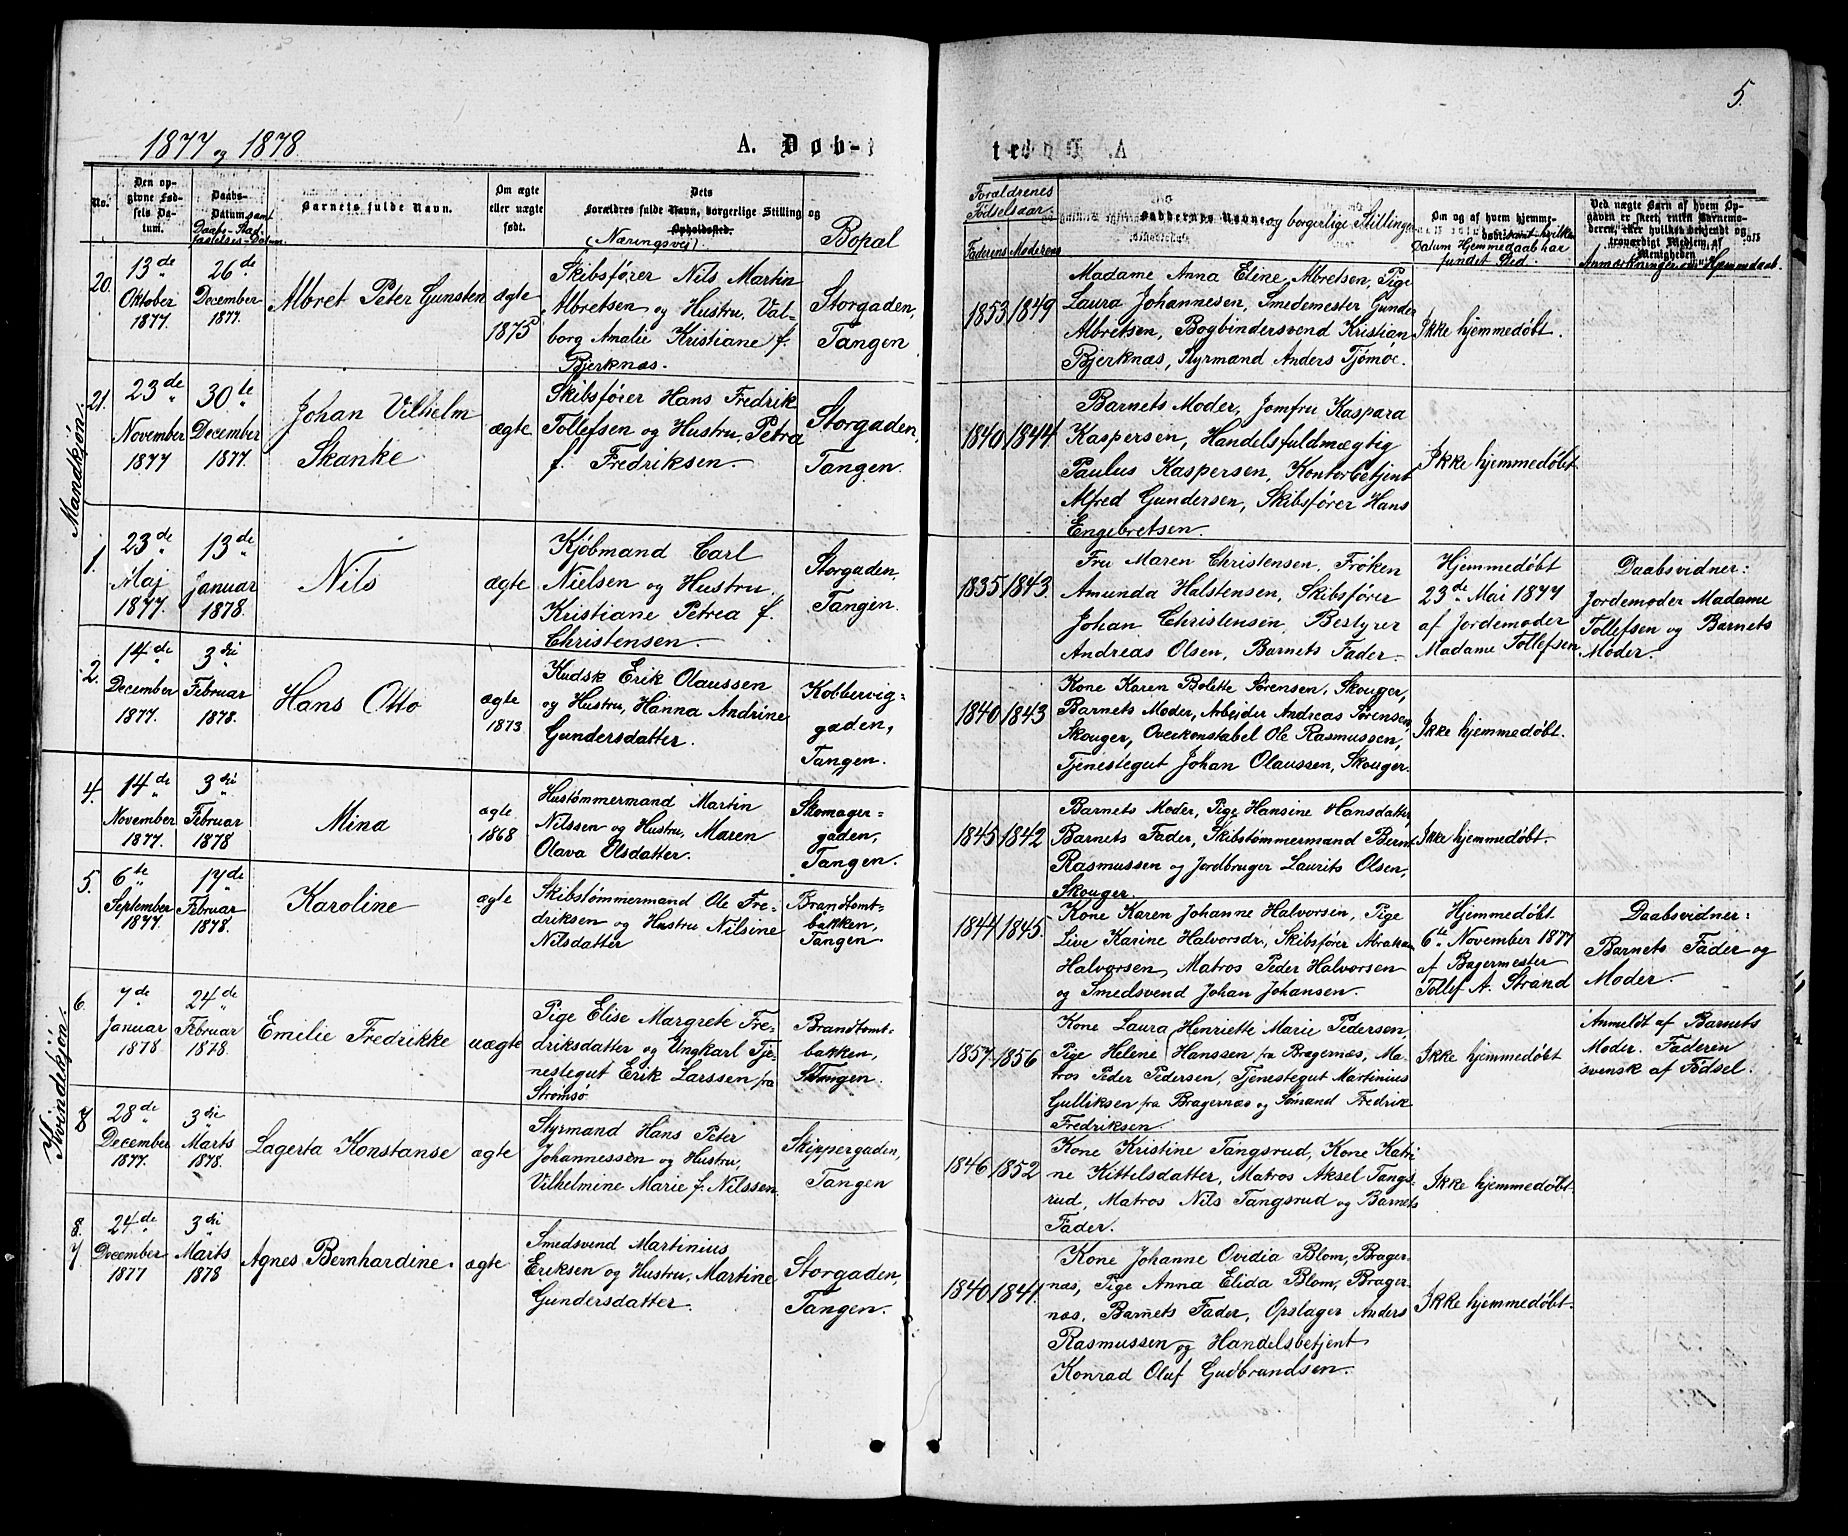 5.
1877 og 1878
A. Døb-
te
No.
Den op-
givne Fød-
sels Da-
tum.
Daabs-
Datum samt
Daabs-Stad-
fæstelses-Datum.
Barnets fulde Navn.
Om ægte
eller uægte
født.
Dets
Forældres fulde Navn, borgerlige Stilling og
Opholdssted.
(Næringsvei)
Bopal
Forældrenes
Fødselsaar.
Faderens Moderens
Faddernes Navne og borgerlige Stillinger
Om og af hvem hjemme-
døbt samt hvilken
Datum Hjemmedaab har
fundet Sted.
Ved uægte Barn af hvem Op-
gaven er skeet, enten Barnemo-
deren, eller hvilket bekjendt og
troværdigt Medlem af
Menigheden
Anmærkninger om Hjemmedaab.
Mandkjøn.
20.
13de
Oktober
1877.
26de
December
1877.
Albret Peter Gunsten
ægte
1875
Skibsfører Nils Martin
Albretsen og Hustru, Val-
borg Amalie Kristiane f.
Bjerknæs.
Storgaden,
Tangen
1853 1849
Madame Anna Eline Albretsen, Pige
Laura Johannesen, Smedemester Gunder
Albretsen, Bogbindersvend Kristian
Bjerknæs, Styrmand Anders Tjömøe.
Ikke hjemmedøbt.
21.
23de
November
1877
30te
December
1877.
Johan Vilhelm
Skanke
ægte
Skibsfører Hans Fredrik
Tollefsen og Hustru, Petra
f. Fredriksen.
Storgaden,
Tangen.
1840 1844
Barnets Moder, Jomfru Kaspara
Kaspersen, Handelsfuldmægtig
Paulus Kaspersen, Kontorbetjent
Alfred Gundersen, Skibsfører Hans
Engebretsen.
Ikke hjemmedøbt
1.
23de
Maj
1877.
13de
Januar
1878.
Nils
ægte
Kjøbmand Carl
Nielsen og Hustru
Kristiane Petrea f.
Christensen.
Storgaden,
Tangen.
1835 1843.
Fru Maren Christensen, Frøken
Amunda Halstensen, Skibsfører
Johan Christensen, Bestyrer
Andreas Olsen, Barnets Fader.
Hjemmedøbt
23de Mai 1877
af Jordemoder
Madame Tollefsen
Daabsvidner:
Jordemoder Madame
Tollefsen og Barnets
Moder.
2.
14de
December
1877.
3die
Februar
1878.
Hans Otto
ægte
1873
Kudsk Erik Olaussen
og Hustru, Hanna Andrine
Gundersdatter.
Kobbervig-
gaden,
Tangen.
1840 1843
Kone Karen Bolette Sørensen, Skouger,
Barnets Moder, Arbeider Andreas Sørensen,
Skouger, Overkonstabel Ole Rasmussen,
Tjenestegut Johan Olaussen, Skouger.
Ikke hjemmedøbt.
Kvindekjøn.
4.
14de
November
1877.
3die
Februar
1878
Mina
ægte
1868
Hustømmermand Martin
Nilssen og Hustru, Maren
Olava Olsdatter.
Skomager-
gaden,
Tangen.
1845 1842
Barnets Moder, Pige Hansine Hansdatter,
Barnets Fader, Skibstømmermand Bernt
Rasmussen og Jordbruger Laurits Olsen,
Skouger.
Ikke hjemmedøbt.
5.
6te
September
1877
17de
Februar
1878.
Karoline
ægte
Skibstømmermand Ole Fre-
driksen og Hustru Nilsine
Nilsdatter
Brandtomt-
bakken,
Tangen.
1844 1845.
Kone Karen Johanne Halvorsen, Pige
Live Karine Halvorsdr, Skibsfører Abraham
Halvorsen, Matros Peder Halvorsen
og Smedsvend Johan Johansen.
Hjemmedøbt
6te November 1877
af Bagermester
Tollef A. Strand
Daabsvidner:
Barnets Fader og
Moder.
6.
7de
Januar
1878
24de
Februar
1878.
Emilie Fredrikke
uægte
Pige Elise Margrete Fre-
driksdatter og Ungkarl Tje-
nestegut Erik Larssen fra
Strømsø
Brandtomt-
bakken,
Tangen.
1857 1856
Kone Laura Henriette Marie Pedersen,
Pige Helene Hanssen fra Bragernæs, Ma-
tros Peder Pedersen, Tjenestegut Martinius
Gulliksen fra Bragernæs og Sømand Fredrik
Fredriksen.
Ikke hjemmedøbt
Anmeldt af Barnets
Moder. Faderen
svensk af Fødsel.
28de
December
1877.
3die
Marts
1878.
Lagerta Konstanse
ægte
Styrmand Hans Peter
Johannessen og Hustru,
Vilhelmine Marie f. Nilssen
Skippergaden,
Tangen
1846 1852
Kone Kristine Tangsrud, Kone Katri
ne Kittelsdatter, Matros Aksel Tangs-
rud, Matros Nils Tangsrud og Barnets
Fader.
Ikke hjemmedøbt
8.
7.
24de
December
1877
3die
Marts
1878
Agnes Bernhardine.
ægte
Smedsvend Martinius
Eriksen og Hustru, Martine
Gundersdatter.
Storgaden,
Tangen.
1840 1841.
Kone Johanne Ovidia Blom, Brager-
næs, Pige Anna Elida Blom, Brager-
næs, Barnets Fader, Opslager Anders
Rasmussen og Handelsbetjent
Konrad Oluf Gudbrandsen.
Ikke hjemmedøbt.